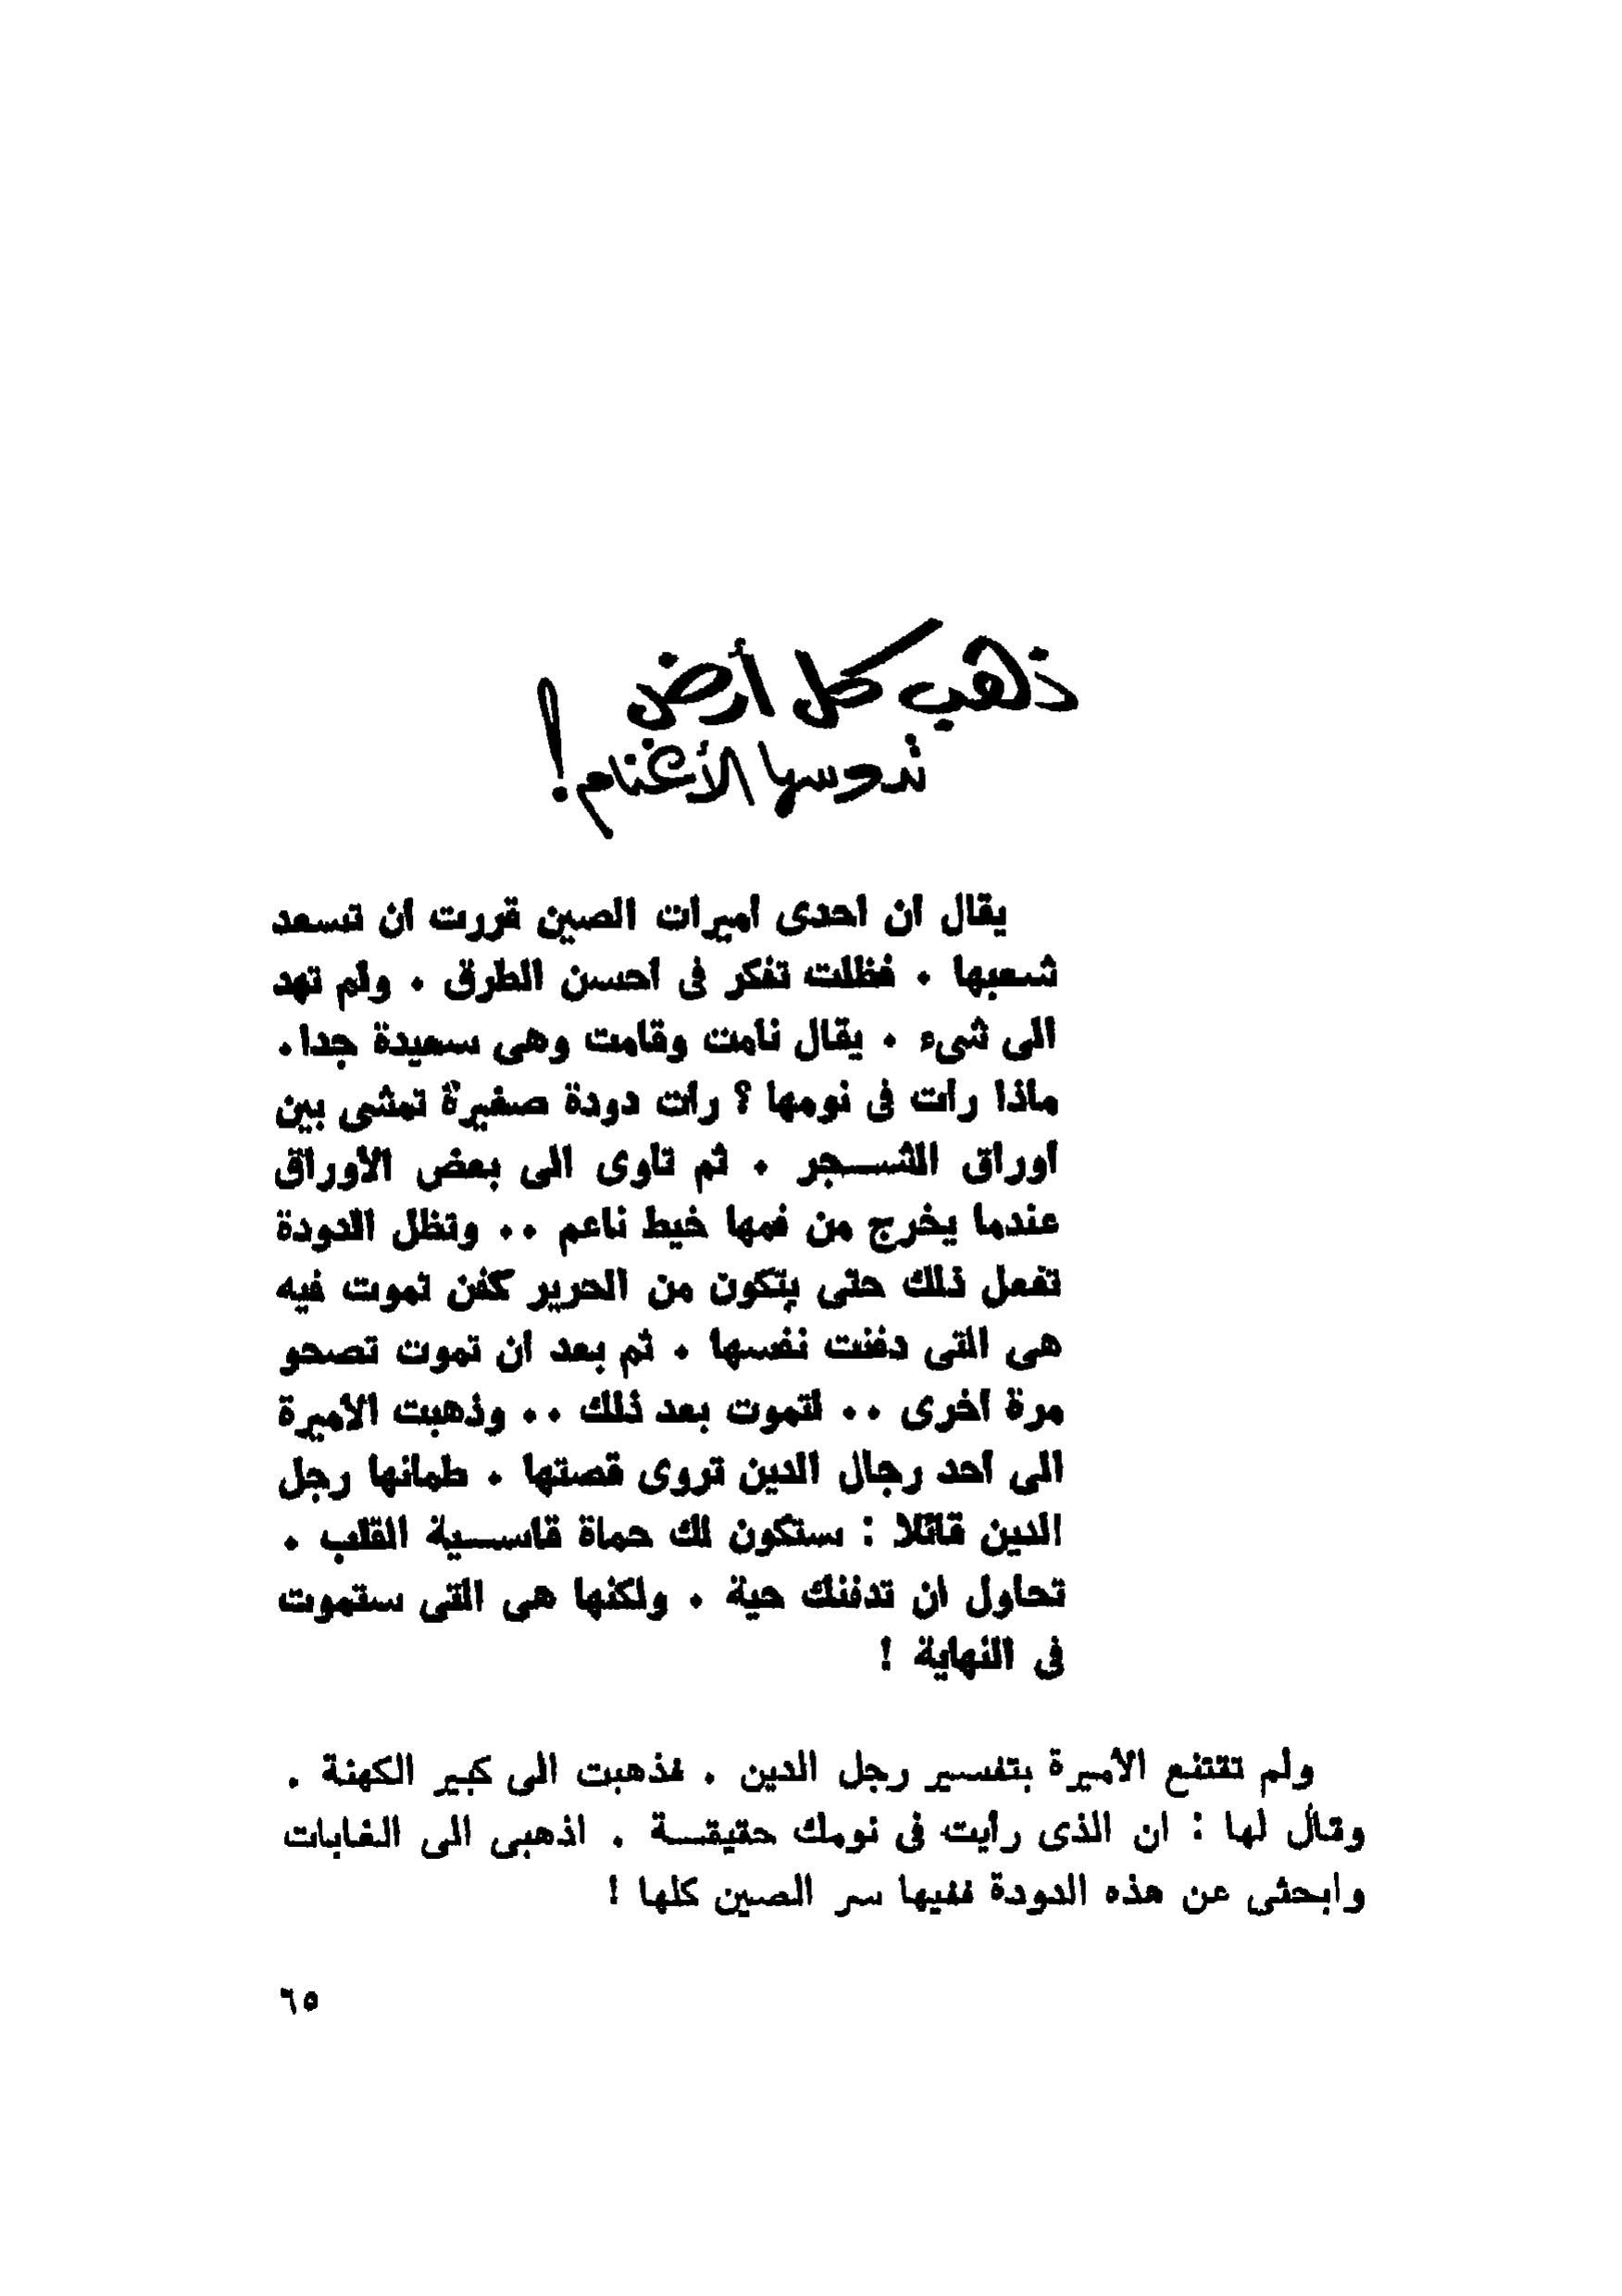 ذهب كل أرض
تدوسها الأغنام !
يقال ان احدى اميرات الصين قررت ان تسعد
شعبها . فظلت تفكر فى احسن الطرق . ولم تهد
الى شىء . يقال نامت وقامت وهى سعيدة جدا .
ماذا رأت فى نومها ؟ رأت دودة صغيرة تمشى بين
أوراق الشجر . ثم تاوى الى بعض الأوراق
عندما يخرج من فمها خيط ناعم .. وتظل الدودة
تفعل ذلك حتى يتكون من الحرير كفن تموت فيه
هى التى دفنت نفسها . ثم بعد ان تموت تصحو
مرة أخرى .. لتموت بعد ذلك .. وذهبت الأميرة
الى أحد رجال الدين تروى قصتها . طمانها رجل
الدين قائلا : ستكون لك حماة قاسية القلب .
تحاول ان تدفنك حية . ولكنها هى التى ستموت
فى النهاية !
ولم تقتنع الأميرة بتفسير رجل الدين . فذهبت الى كبير الكهنة .
وقال لها : ان الذى رأيت فى نومك حقيقة . اذهبى الى الغابات
وابحثى عن هذه الدودة ففيها سر الصين كلها !
٦٥